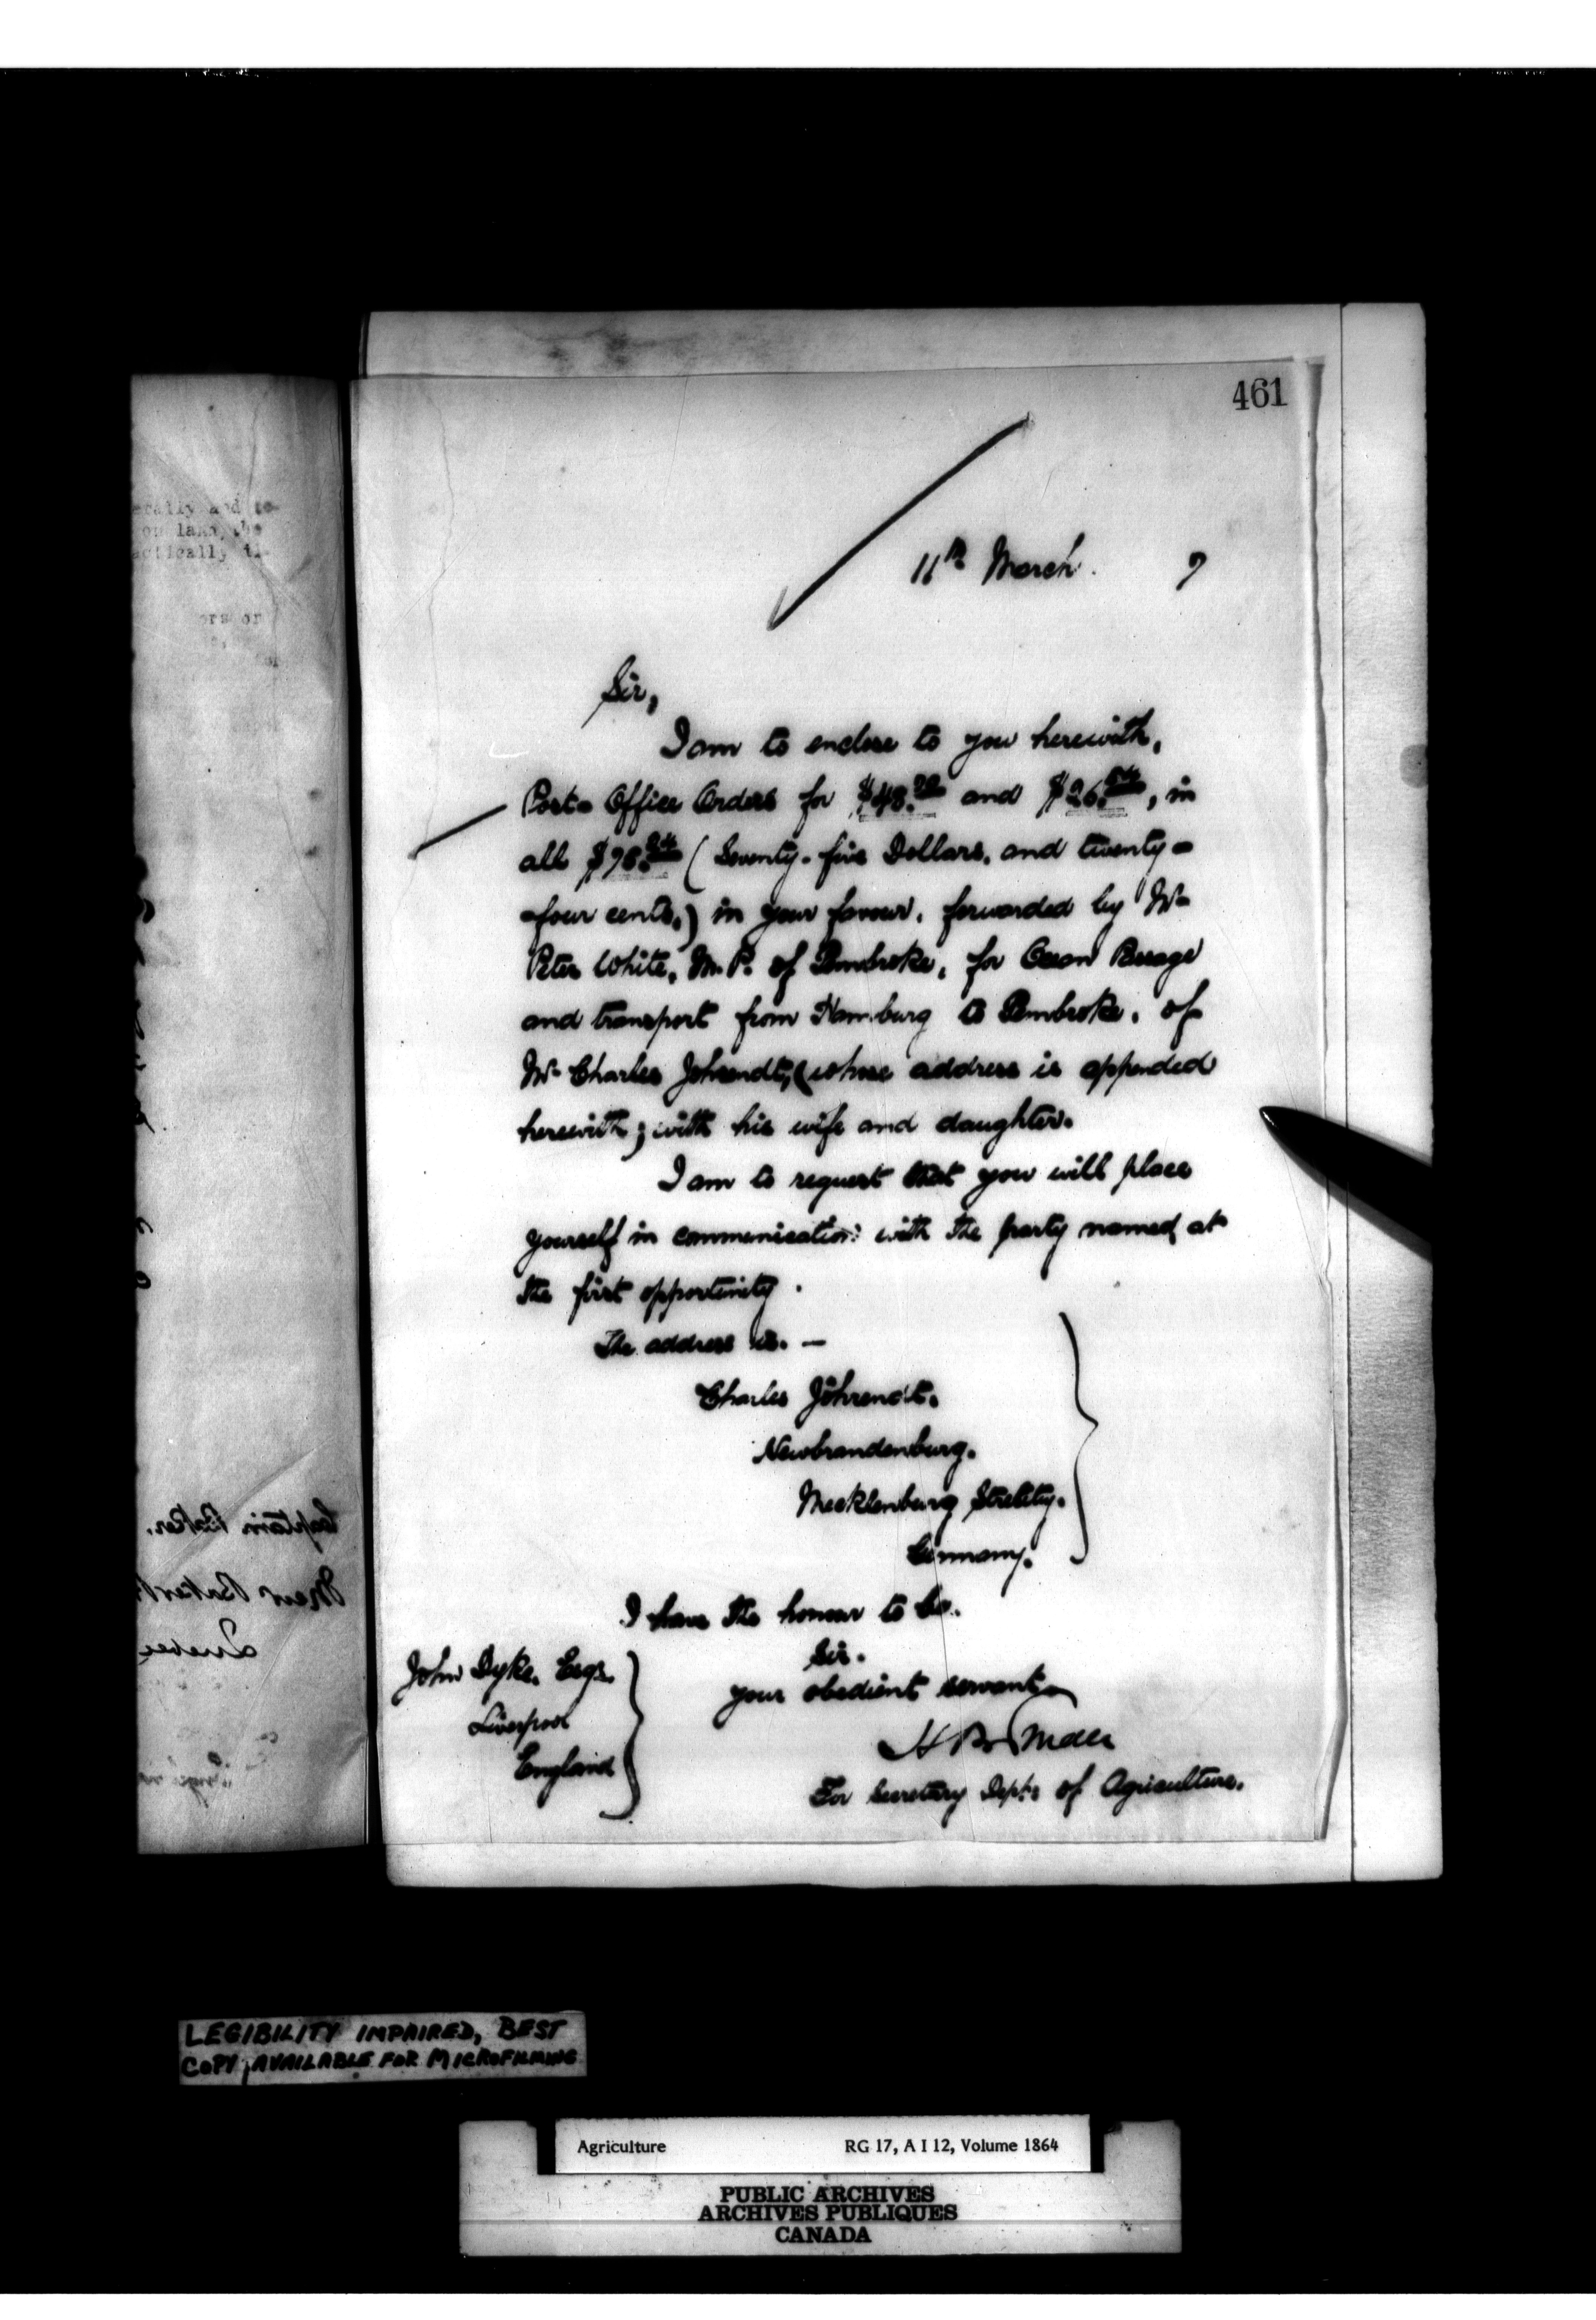 461
11th March. 7
Sir,
I am to enclose to you herewith,
Post Office Orders for $48.70 and $26.54, in
all $75.24 (Seventy-five Dollars, and twenty-
-four cents.) in your favour, forwarded by Mr
Peter White, M.P. of Pembroke, for Ocean Passage
and transport from Hamburg to Pembroke, of
Mr Charles Johrendt, (whose address is appended
herewith) with his wife and daughter.
I am to request that you will place
yourself in communication with the party named, at
the first opportunity.
The address is. —
Charles Jöhrendt.
Newbrandenburg.
Mecklenburg Strelitz.
Germany.
I have the honour to be.
Sir.
your obedient servant
H B Small
For Secretary Dept. of Agriculture.
John Dyke. Esqr.
Liverpool
England
Captain Baker.
Quebec
LEGIBILITY IMPAIRED, BEST
COPY AVAILABLE FOR MICROFILMING
Agriculture RG 17, A I 12, Volume 1864
PUBLIC ARCHIVES
ARCHIVES PUBLIQUES
CANADA